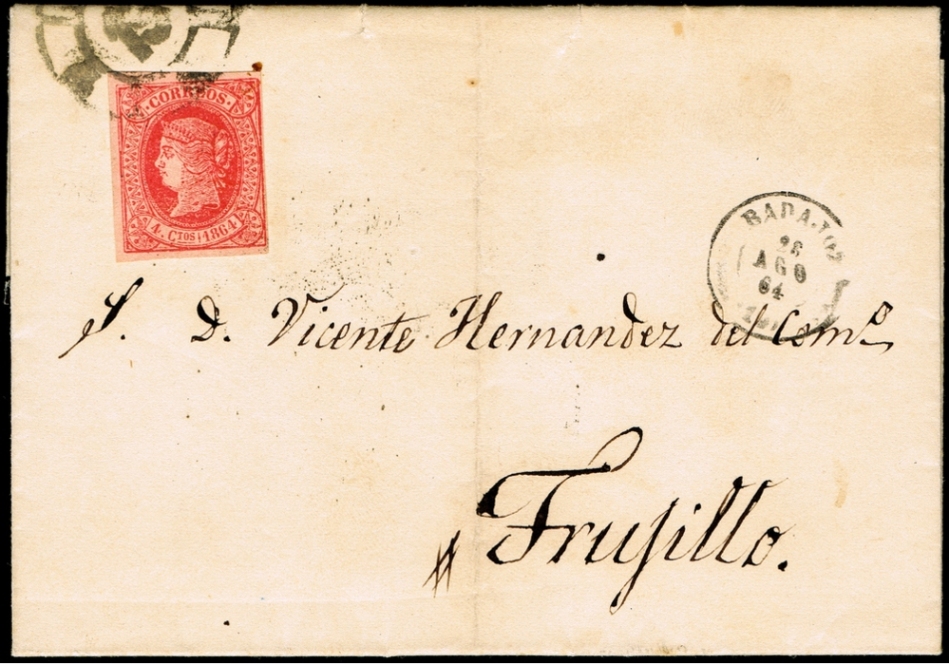 CORREOS
4 CTOS 1864
BADAJOZ
AGO
64
S. D. Vicente Hernandez del Comº
Trujillo.